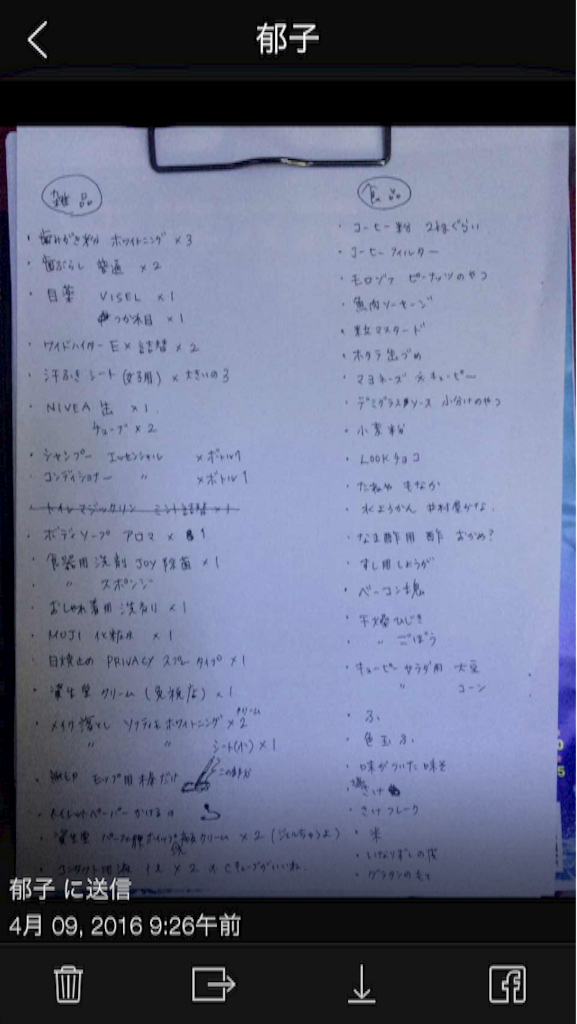 郁子
雑品
歯みがき粉 ホワイトニング ×3
歯ぶらし 普通 ×2
目薬 VISEL ×1
つか木目 ×1
ワイドハイター EX 詰替 ×2
汗ふきシート (女子用) × 大きいの3
NIVEA 缶 ×1
チューブ ×2
シャンプー エッセンシャル ×ボトル1
コンディショナー 〃 ×ボトル1
トイレマジックリン ミント詰替 ×1
ボディソープ アロマ × 1
食器用洗剤 JOY 除菌 ×1
〃 スポンジ
おしゃれ着用洗剤 ×1
MUJI 化粧水 ×1
日焼止め PRIVACY スプレータイプ ×1
資生堂 クリーム (免税店) ×1
メイク落とし ソフティモ ホワイトニング ×2 クリーム
〃 〃 シート(小) ×1
モップ用本棒だけ
トイレットペーパーかける
資生堂 パーフェクトホイップ クリーム ×2
コンタクト用液 ×2
食品
コーヒー粉 2袋ぐらい
コーヒーフィルター
モロゾフ ピーナッツのやつ
魚肉ソーセージ
粒マスタード
ホタテ缶づめ
マヨネーズ ※キューピー
デミグラスソース 小分けのやつ
小麦粉
LOOKチョコ
たねや もなか
水ようかん 井村屋かな。
なま酢用 酢 おかめ?
すし用しょうが
ベーコン塊
干燥ひじき
〃 ごぼう
キューピー サラダ用 大豆
〃 コーン
ふ
色玉ふ
味がついた味そ
さけ
さけフレーク
米
いなりずしの皮
グラタンのもと
郁子 に送信
4月 09, 2016 9:26午前